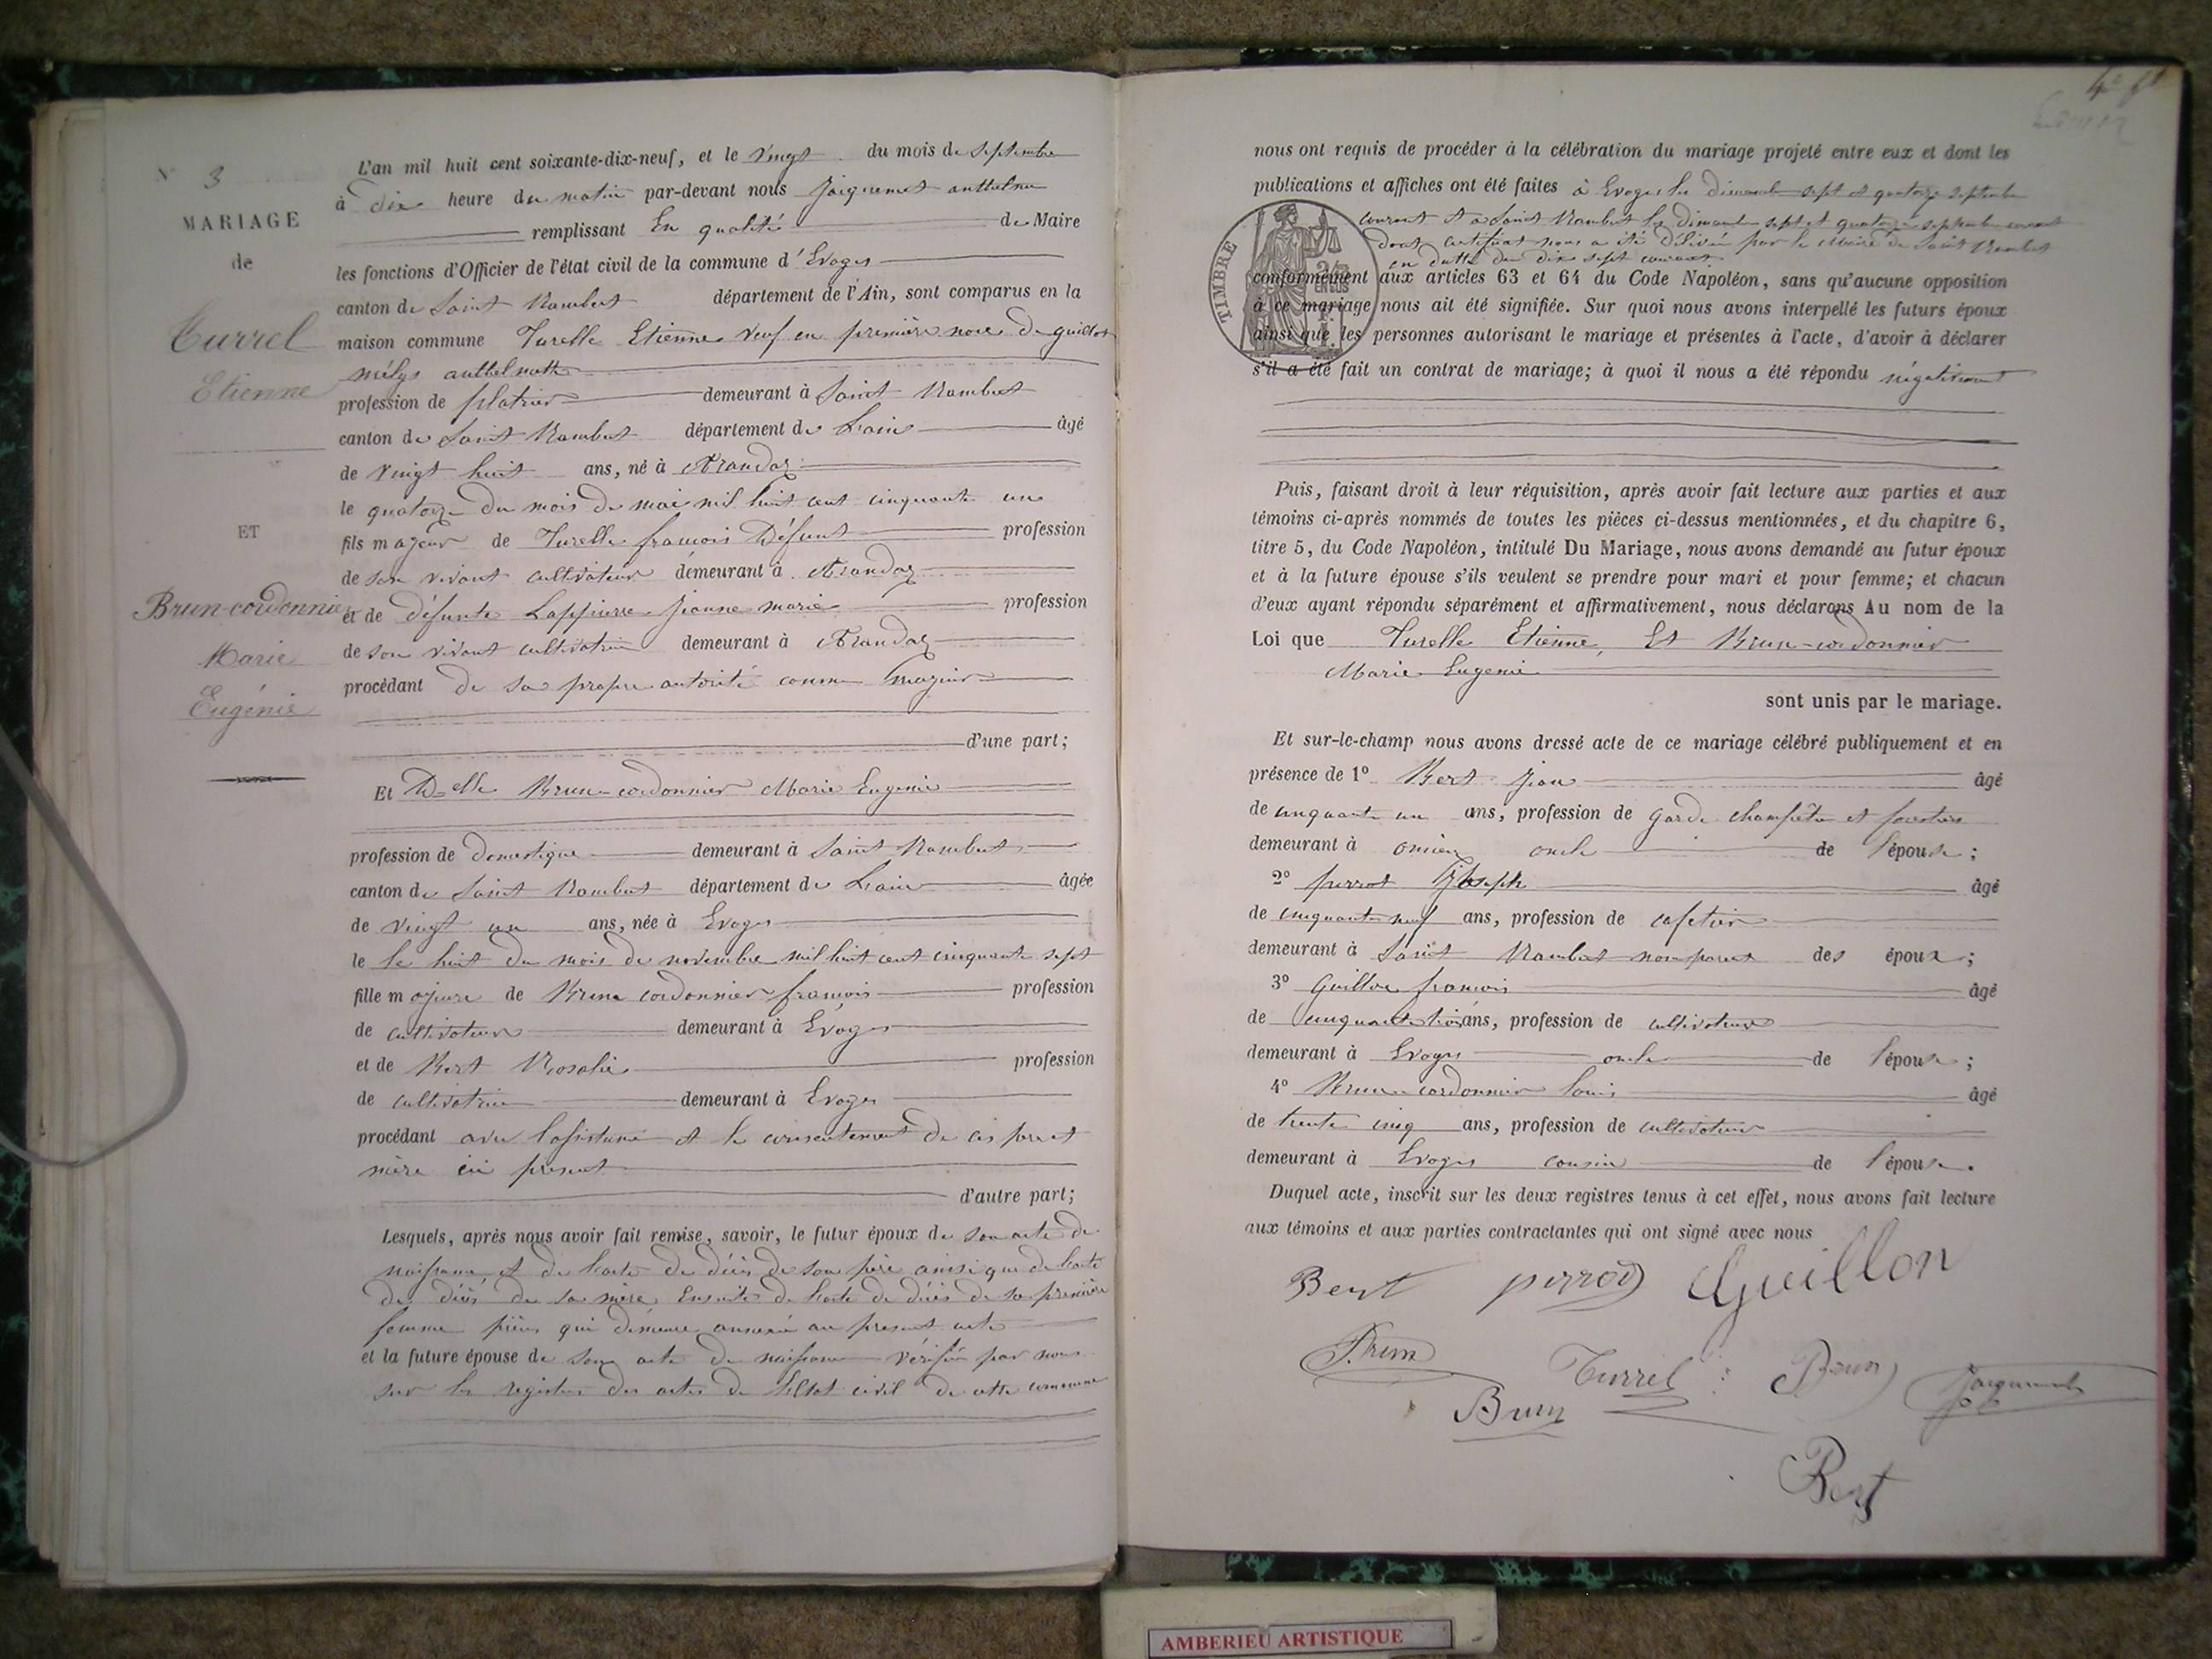 N° 3
MARIAGE
de
Turrel
Etienne
ET
Brun-cordonnier
Marie
Eugénie
L'an mil huit cent soixante-dix-neuf, et le Vingt du mois de septembre
à dix heure du matin par-devant nous Jacquemet anthelme
remplissant En qualité de Maire
les fonctions d'Officier de l'état civil de la commune d'Evoges
canton de Saint Rambert département de l'Ain, sont comparus en la
maison commune Turelle Etienne Veuf en première noce de guillot
anthelmette
profession de platrier demeurant à Saint Rambert
canton de Saint Rambert département de L'ain âgé
de Vingt huit ans, né à Arandaz
le quatorze du mois de mai mil huit cent cinquante un
fils majeur de Turelle francois Défunt profession
de son vivant cultivateur demeurant à Arandaz
et de défunte Lappierre jeanne marie profession
de son vivant cultivatrice demeurant à Arandaz
procédant de sa propre autorité comme majeur
d'une part;
Et Delle Brun-cordonnier Marie Eugenie
profession de Domestique demeurant à Saint Rambert
canton de Saint Rambert département de L'ain âgée
de vingt un ans, née à Evoges
le le huit du mois de novembre mil huit cent cinquante sept
fille majeure de Brun cordonnier francois profession
de cultivateur demeurant à Evoges
et de Bert Rosalie profession
de cultivatrice demeurant à Evoges
procédant avec l'assistance et le consentement de ces pere et
mère ici present
d'autre part;
Lesquels, après nous avoir fait remise, savoir, le futur époux de son acte de
naissance et de l'acte de décès de son père ainsi que de l'acte
de décès de sa mère Ensuite de l'acte de décès de sa première
femme pièces qui demeure annexé au present acte
et la future épouse de son acte de naissance vérifié par nous
sur les registres des actes de l'Etat civil de cette commune
nous ont requis de procéder à la célébration du mariage projeté entre eux et dont les
publications et affiches ont été faites à Evoges les dimanche sept et quatorze septembre
courant et a Saint Rambert les dimanche sept et quatorze septembre courant
dont certificat nous a été délivré par le Maire de Saint Rambert
en datte du dix sept courant
TIMBRE
conformément aux articles 63 et 64 du Code Napoléon, sans qu'aucune opposition
à ce mariage nous ait été signifiée. Sur quoi nous avons interpellé les futurs époux
ainsi que les personnes autorisant le mariage et présentes à l'acte, d'avoir à déclarer
s'il a été fait un contrat de mariage; à quoi il nous a été répondu négativement
Puis, faisant droit à leur réquisition, après avoir fait lecture aux parties et aux
témoins ci-après nommés de toutes les pièces ci-dessus mentionnées, et du chapitre 6,
titre 5, du Code Napoléon, intitulé Du Mariage, nous avons demandé au futur époux
et à la future épouse s'ils veulent se prendre pour mari et pour femme; et chacun
d'eux ayant répondu séparément et affirmativement, nous déclarons Au nom de la
Loi que Turelle Etienne Et Brun-cordonnier
Marie Eugenie
sont unis par le mariage.
Et sur-le-champ nous avons dressé acte de ce mariage célébré publiquement et en
présence de 1° Bert Jean âgé
de cinquante un ans, profession de garde champêtre et forestier
demeurant à oncle de l'épouse;
2° perrot Joseph âgé
de cinquante neuf ans, profession de cafetier
demeurant à Saint Rambert non parent des époux;
3° Guillon francois âgé
de cinquante trois ans, profession de cultivateur
demeurant à Evoges oncle de l'épouse;
4° Brun-cordonnier Louis âgé
de trente cinq ans, profession de cultivateur
demeurant à Evoges cousin de l'épouse.
Duquel acte, inscrit sur les deux registres tenus à cet effet, nous avons fait lecture
aux témoins et aux parties contractantes qui ont signé avec nous
Bert perrot Guillon
Brun Turrel Brun Jacquemet
Brun
Bert
AMBERIEU ARTISTIQUE